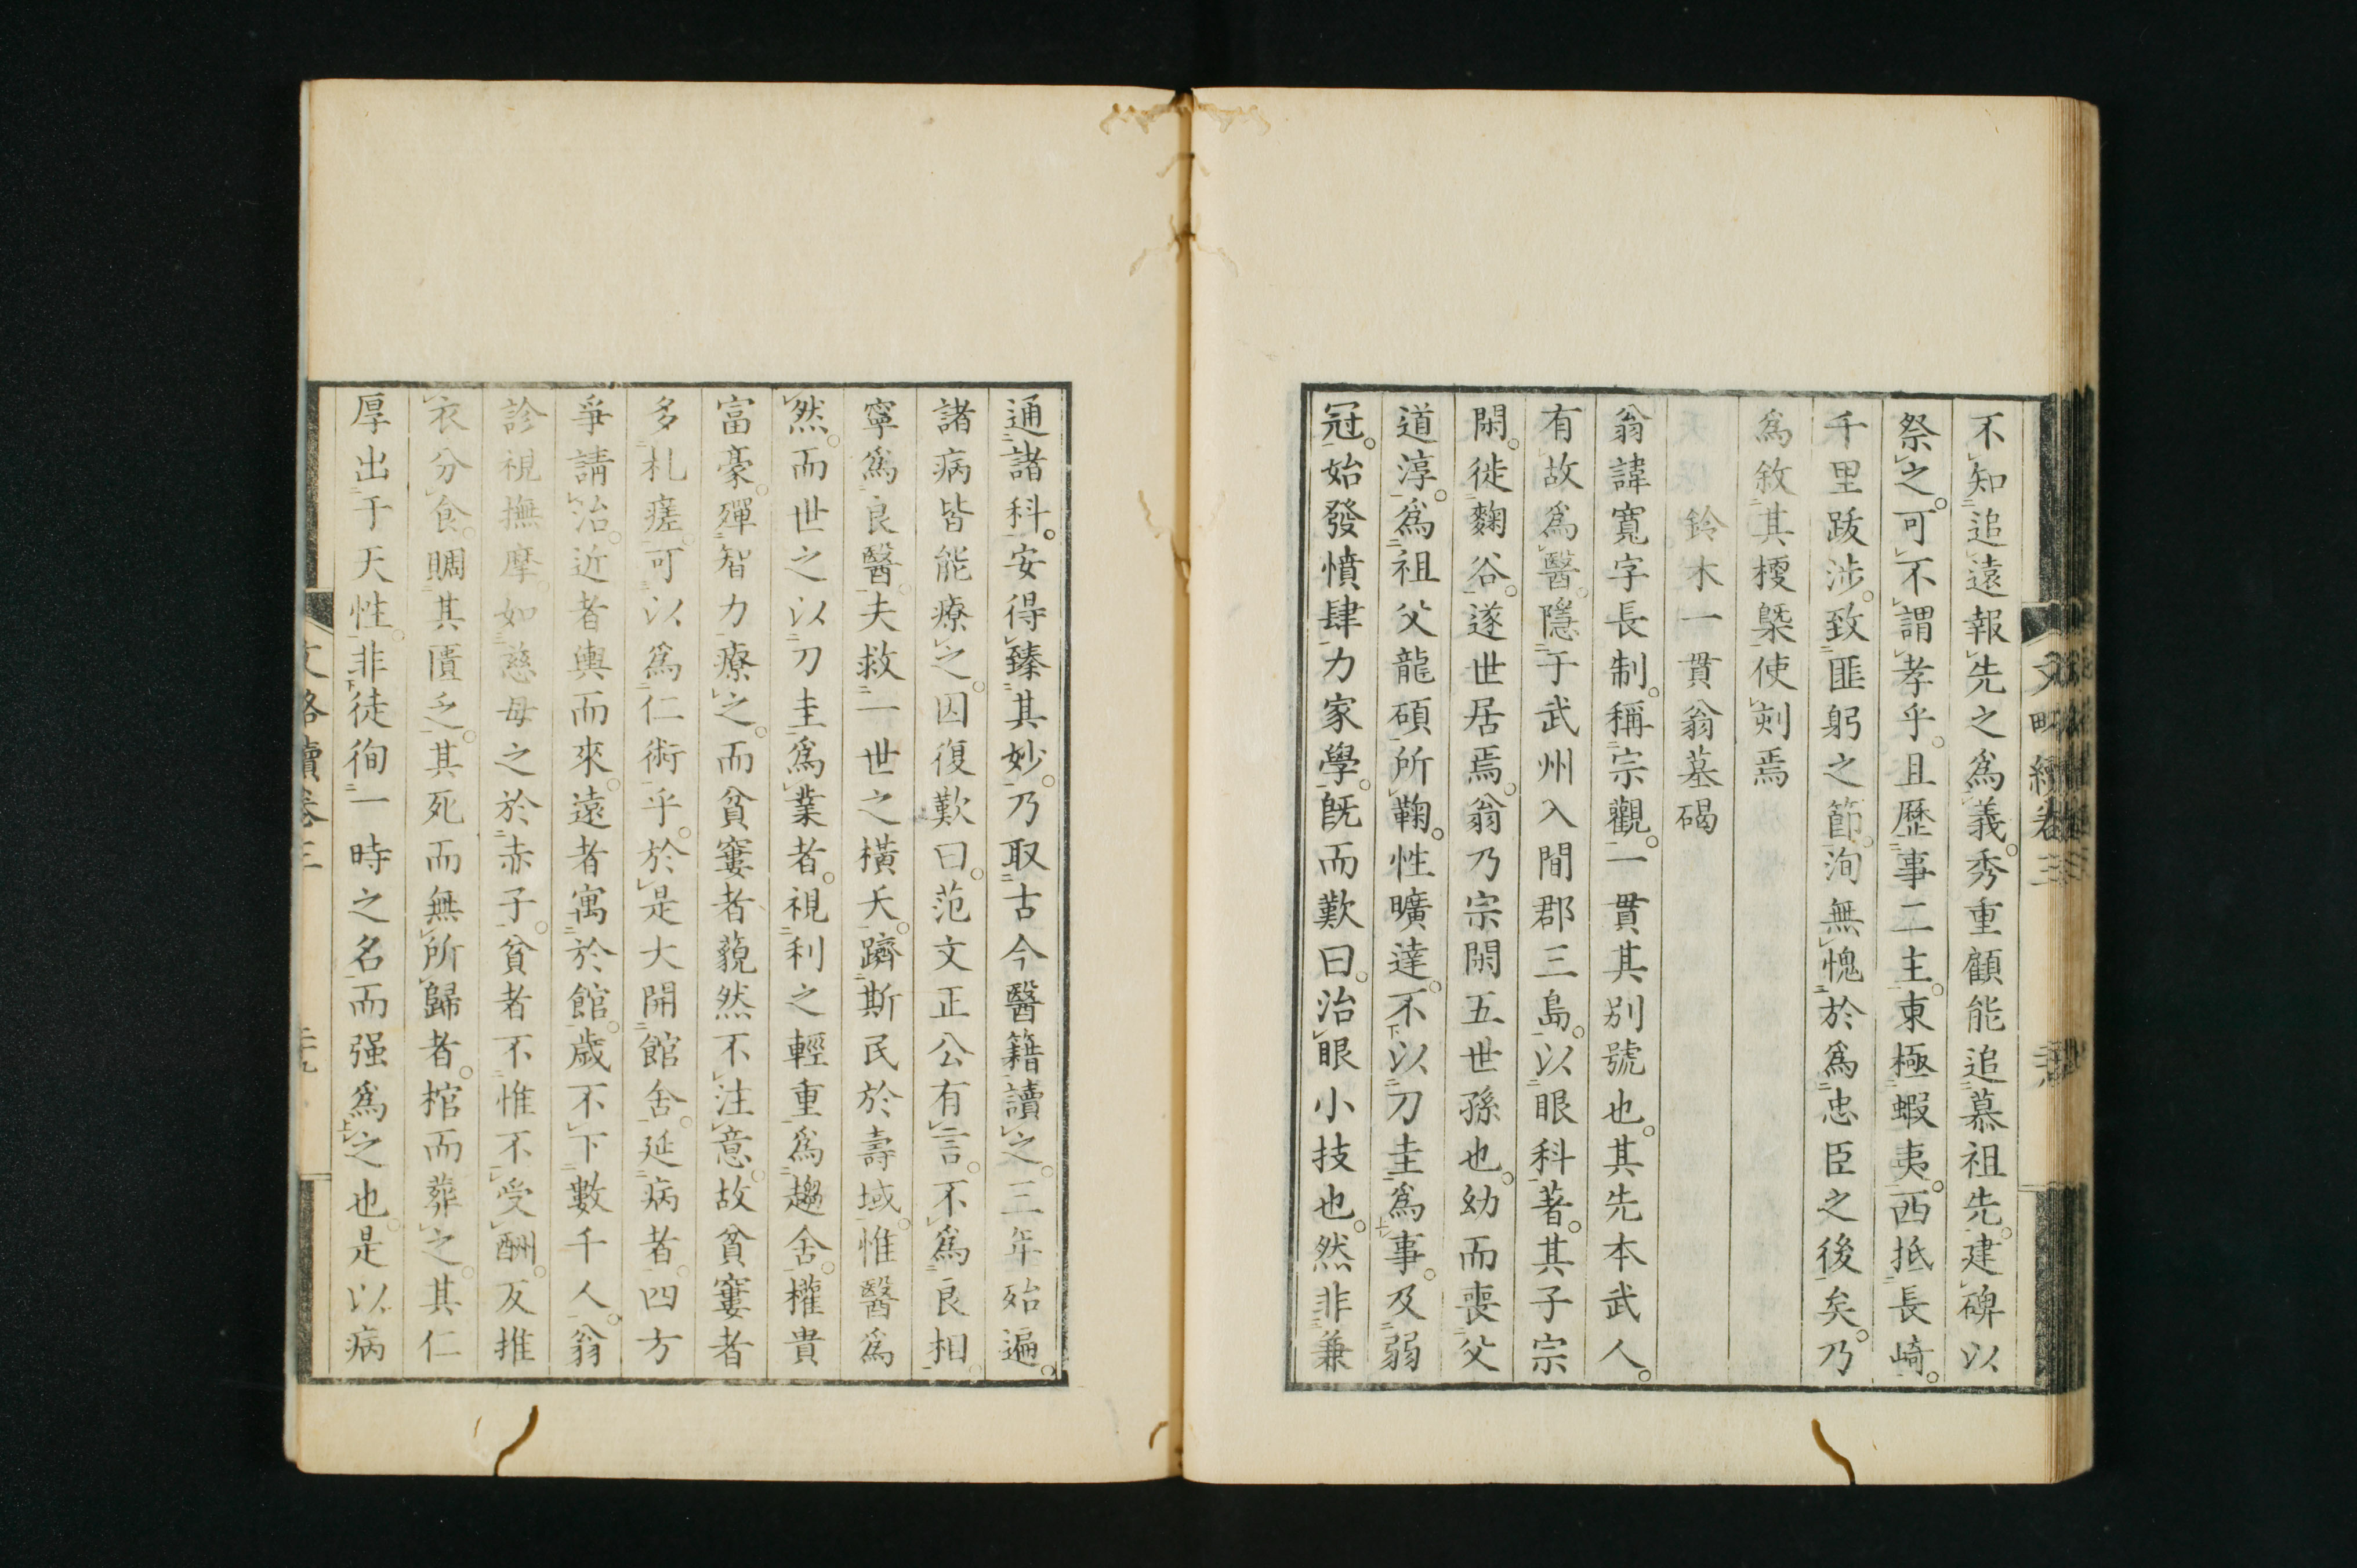 不知追遠報先之爲義。秀重顧能追慕祖先。建碑以
祭之。可不謂孝乎。且歷事二主。東極蝦夷。西抵長崎。
千里跋涉。致匪躬之節。洵無愧於爲忠臣之後矣。乃
爲敘其梗槩使刻焉
鈴木一貫翁墓碣
翁諱寬字長制。稱宗觀。一貫其別號也。其先本武人。
有故爲醫。隱于武州入間郡三島。以眼科著。其子宗
閑。徙麴谷。遂世居焉。翁乃宗閑五世孫也。幼而喪父
道淳。爲祖父龍碩所鞠。性曠達。不以刀圭爲事。及弱
冠。始發憤肆力家學。既而歎曰。治眼小技也。然非兼
通諸科。安得臻其妙。乃取古今醫籍讀之。三年殆遍。
諸病皆能療之。因復歎曰。范文正公有言。不爲良相。
寧爲良醫。夫救一世之橫夭。躋斯民於壽域。惟醫爲
然。而世之以刀圭爲業者。視利之輕重爲趨舍。權貴
富豪。殫智力療之。而貧窶者藐然不注意。故貧窶者
多札瘥。可以爲仁術乎。於是大開館舍。延病者。四方
爭請治。近者輿而來。遠者寓於館。歲不下數千人。翁
診視撫摩。如慈母之於赤子。貧者不惟不受酬。反推
衣分食。賙其匱乏。其死而無所歸者。棺而葬之。其仁
厚出于天性。非徒徇一時之名而强爲之也。是以病
文略續卷三